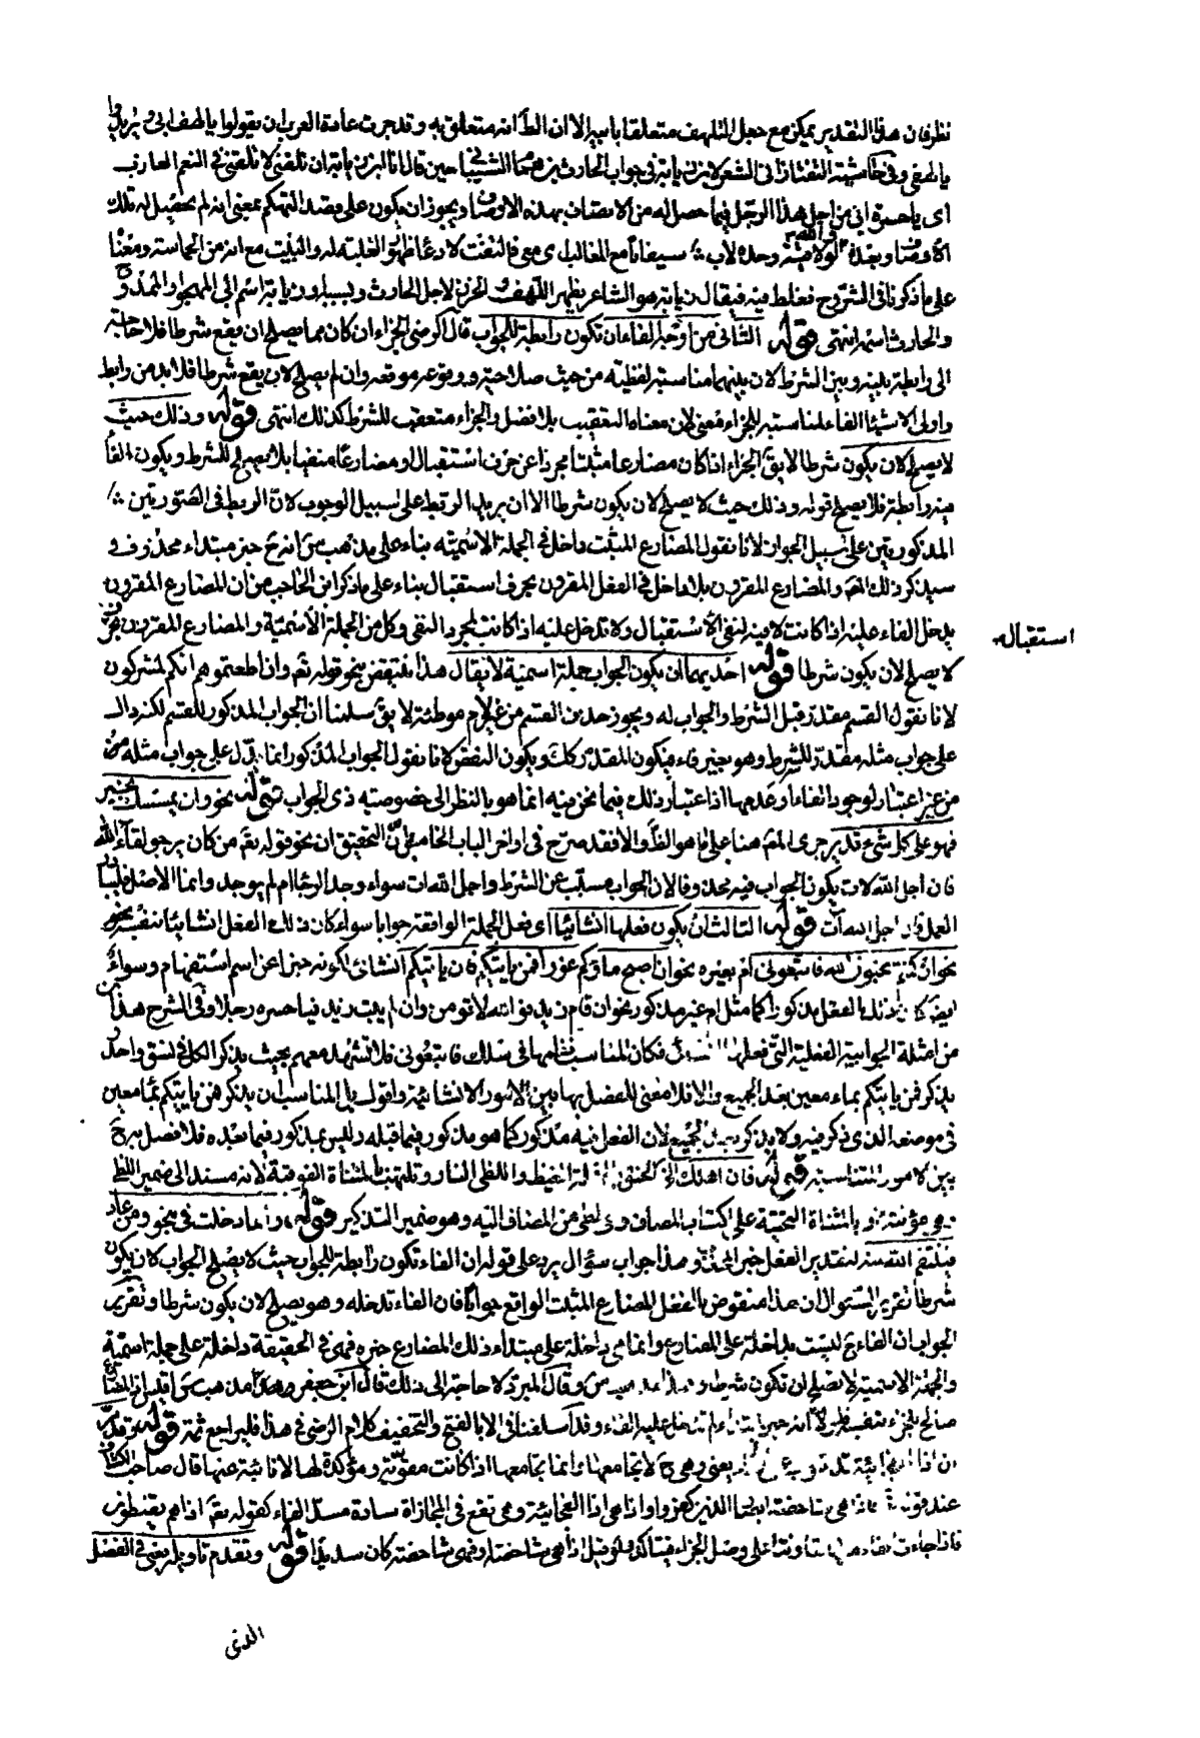 نظر فان هذا التقدير يمكن مع جعل التلهف متعلقا بابيه الا ان الظ انه متعلق به وقد جرت عادة العرب ان يقولوا يا لهف ابي ويريدوا
يا لهفي وفي حاشية التفتازاني الشعر لابن زيابة في جواب الحارث بن همام الشيباني حين قال انا ابن زيابة ان تلقني لا تلقني في النعم العازب
اي يا حسرة ابي من اجل هذا الرجل فيما حصل له من الاتصاف بهذه الاوصاف ويجوز ان يكون على قصد التهكم بمعنى انه لم يحصل له تلك
الاوصاف وبعده والله لو لاقيته وحده لآب سيفانا مع الغالب اي معي فالتفت لادعاء ظهور الغلبة له والبيت مع انه من الحماسة ومعناه
على ما ذكرنا في الشروح فغلط فيه فيقال زيابة هو الشاعر يظهر اللهف والحزن لاجل الحارث وبسببه او زيابة اسم ابي المهجو او الممدوح
والحارث اسمه انتهى قوله الثاني من اوجه الفاء ان تكون رابطة للجواب قال الرضي الجزاء ان كان مما يصلح ان يقع شرطا فلا حاجة
الى رابطة بينه وبين الشرط لان بينهما مناسبة لفظية من حيث صلاحية وقوعه موقعه وان لم يصلح لان يقع شرطا فلا بد من رابط
واولى الاشياء الفاء لمناسبته للجزاء معنى لان معناه التعقيب بلا فصل والجزاء متعقب للشرط كذلك انتهى قوله وذلك حيث
لا يصلح لان يكون شرطا لا يق الجزاء اذا كان مضارعا مثبتا مجردا عن حرف استقبال او مضارعا منفيا بلا يصلح للشرط ويكون الفاء
فيه رابطة فلا يصلح قوله وذلك حيث لا يصلح لان يكون شرطا الا ان يريد الربط على سبيل الوجوب لان الربط في الصورتين
المذكورتين على سبيل الجواز لانا نقول المضارع المثبت داخل في الجملة الاسمية بناء على مذهب من انه ح خبر مبتداء محذوف و
سيذكر ذلك المص والمضارع المقرون بلا داخل في الفعل المقرون بحرف استقبال بناء على ما ذكر ابن الحاجب من ان المضارع المقرون
يدخل الفاء عليه اذا كانت لا فيه لنفي الاستقبال ولا تدخل عليه اذا كانت لمجرد النفي وكل من الجملة الاسمية والمضارع المقرون بحرف
استقباله
لا يصلح لان يكون شرطا قوله احديهما ان يكون الجواب جملة اسمية لا يقال هذا منتقض بنحو قوله تع وان اطعتموهم انكم لمشركون
لانا نقول القسم مقدر قبل الشرط والجواب له ويجوز حذف القسم من غير لام موطئة لا يق سلمنا ان الجواب المذكور للقسم لكنه دال
على جواب مثله مقدر للشرط وهو بغير فاء فيكون المقدر كك ويكون النقض لانا نقول الجواب المذكور انما يدل على جواب مثله
من غير اعتبار لوجود الفاء او عدمها اذ اعتبار ذلك فيما نحن فيه انما هو بالنظر الى خصوصية ذي الجواب قوله نحو وان يمسسك بخير
فهو على كل شيء قدير جرى المص هنا على ما هو الظ والا فقد صرح في اواخر الباب الخامس بان التحقيق ان نحو قوله تع من كان يرجو لقاء الله
فان اجل الله لآت يكون الجواب فيه محذوفا لان الجواب مسبب عن الشرط واجل الله آت سواء وجد الرجا ام لم يوجد وانما الاصل فليبادر
العمل فان اجل الله آت قوله الثالث ان يكون فعلها انشائيا اي فعل الجملة الواقعة جوابا سواء كان ذلك الفعل انشائيا بنفسه نحو
نحو ان كنتم تحبون الله فاتبعوني ام بغيره نحو ان اصبح ماؤكم غورا فمن ياتيكم فان ياتيكم انشائي لكونه خبرا عن اسم استفهام وسواء
ايضا كان ذلك الفعل مذكورا كما مثل ام غير مذكور نحو ان قام زيد فو الله لاقومن وان لم يتب زيد فيا حسره رجلا وفي الشرح هذا
من امثلة الجوابية الفعلية التي فعلها فكان المناسب نظمها في سلك فاتبعوني فلا تشهد معهم بحيث يذكر الكل في نسق واحد
يذكر فمن ياتيكم بماء معين بعد الجميع والا فلا معنى للفصل بها بين الامور الانشائية واقول بل المناسب ان يذكر فمن ياتيكم بماء معين
في موضعه الذي ذكر فيه ولا يذكر بعد الجميع لان الفعل فيه مذكور كما هو مذكور فيما قبله وليس بمذكور فيما بعده فلا فصل به ح
بين الامور المتناسبة قوله فان اهلك الحنق الغيظ واللظى النار وتلتهب بالمثناة الفوقية لانه مسند الى ضمير اللظى
وهي مؤنثة او بالمثناة التحتية على اكتساب المضاف وذي لظى من المضاف اليه وهو ضمير التذكير قوله واما دخلت في نحو ومن عاد
فينتقم الله منه لتقدير الفعل خبر المحذوف هذا جواب سؤال يرد على قوله ان الفاء تكون رابطة للجواب حيث لا يصلح الجواب لان يكون
شرطا تقرير السؤال ان هذا منقوض بالفعل المضارع المثبت الواقع جوابا فان الفاء تدخله وهو يصلح لان يكون شرطا وتقرير
الجواب ان الفاء ح ليست بداخلة على المضارع وانما هي داخلة على مبتداء ذلك المضارع خبره فهي في الحقيقة داخلة على جملة اسمية
والجملة الاسمية لا تصلح لان تكون شرطا وقال المبرد لا حاجة الى ذلك قال ابن جعفر
صالح للجزاء بنفسه فلولا انه خبر مبتداء لم تدخل عليه الفاء وقد اسلفنا في الا بالفتح والتخفيف كلام الرضي في هذا فليراجع ثمة قوله
ان اذا الفجائية يعني وهي ح لا تجامعها وانما تجامعها اذا كانت مقوية ومؤكدة لها لا نائبة عنها قال صاحب الكشاف
عند قوله فاذا هي شاخصة ابصار الذين كفروا واذا هي اذا الفجائية وهي تقع في المجازاة سادة مسد الفاء كقوله تع اذا هم يقنطون
فاذا جاءت الفاء معها تعاونتا على وصل الجزاء فيتاكد ولو قيل اذا هي شاخصة او فهي شاخصة كان سديدا قوله وتقدم تاويله يعني في الفصل
الذي